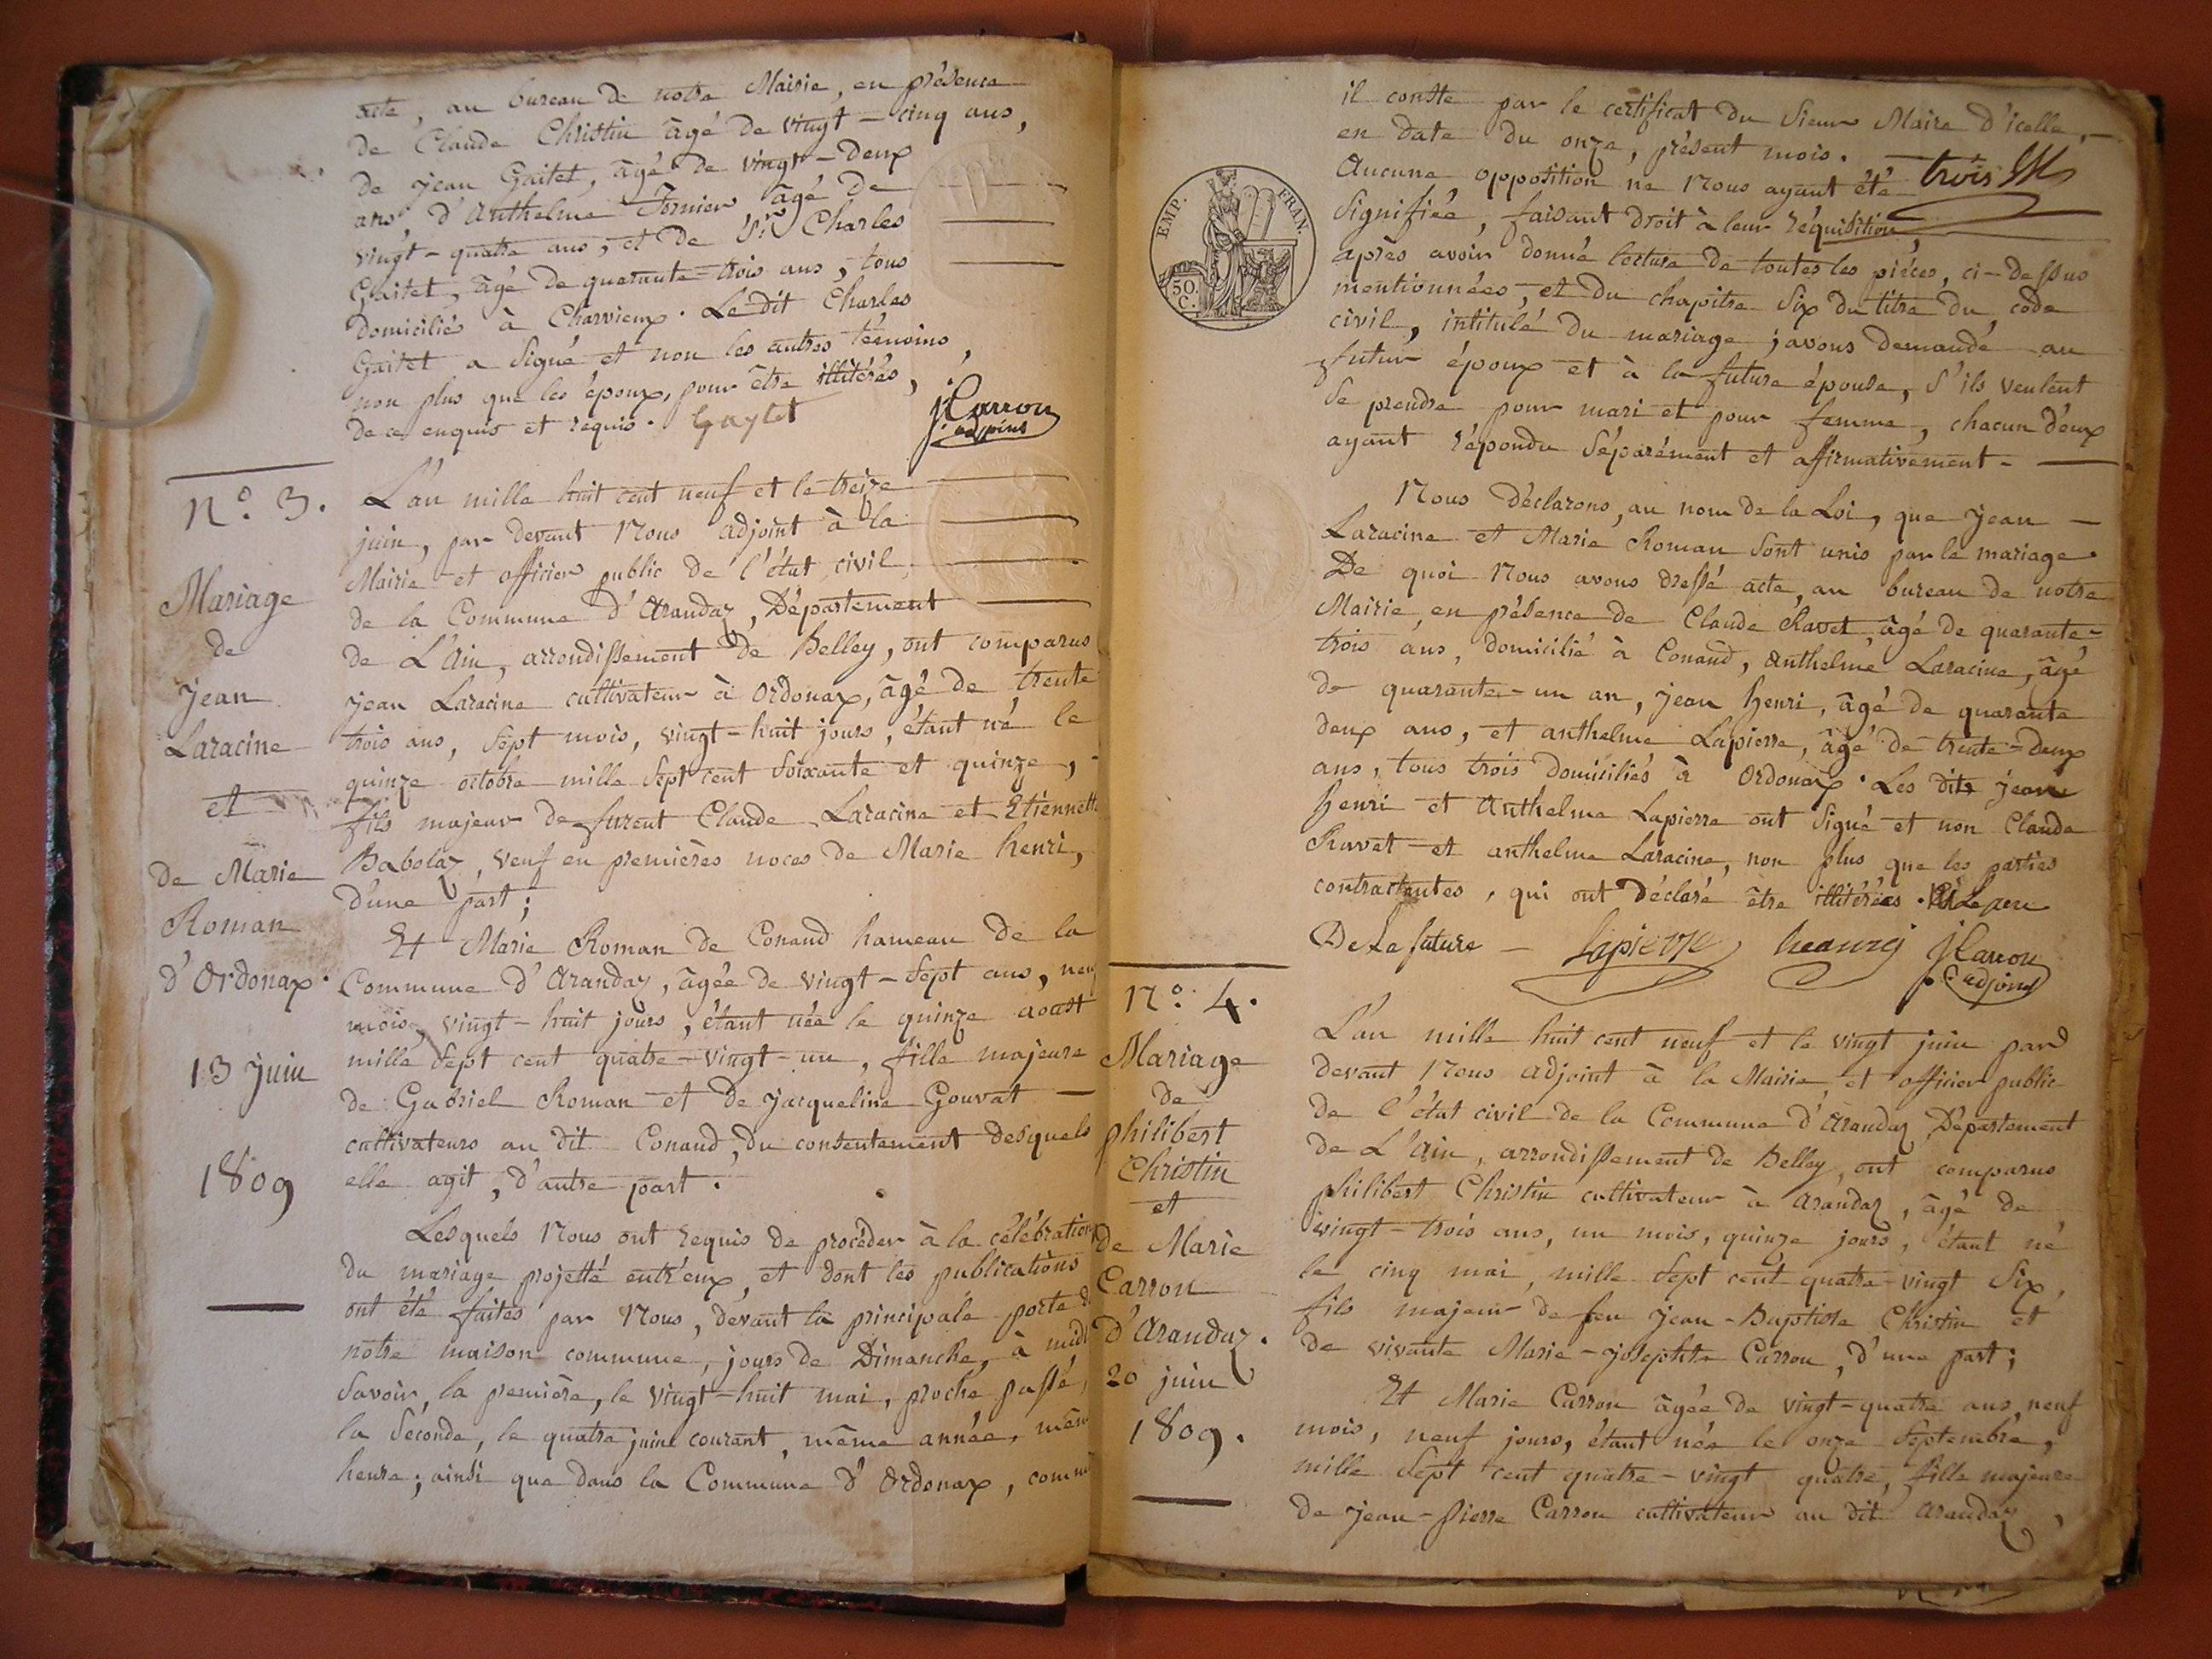 acte, au bureau de notre Mairie, en présence
de Claude Christin âgé de vingt-cinq ans,
de jean Gaitet, âgé de vingt-deux
ans, d'Anthelme Fornier âgé de
vingt-quatre ans, et de Sr. Charles
Gaitet, âgé de quarante-trois ans, tous
domiciliés à Charvieux. Le dit Charles
Gaitet a signé et non les autres témoins,
non plus que les époux, pour être illitérés,
de ce enquis et requis. Gaytet
jCarron
adjoint
N.° 3.
Mariage
de
jean
Laracine
et
de Marie
Roman
d'Ordonax.
13 juin
1809
L'an mille huit cent neuf et le treize
juin, par devant Nous adjoint à la
Mairie et officier public de l'état civil
de la Commune d'Arandaz, Département
de L'Ain, arrondissement de Belley, ont comparus
jean Laracine cultivateur à Ordonax, âgé de trente
trois ans, sept mois, vingt-huit jours, étant né le
quinze octobre mille sept cent soixante et quinze,
fils majeur de furent Claude Laracine et Etiennette
Babolaz, veuf en premières noces de Marie henri,
d'une part;
Et Marie Roman de Conand hameau de la
Commune d'Arandaz, âgée de vingt-sept ans, neuf
mois, vingt-huit jours, étant née le quinze aoust
mille sept cent quatre-vingt-un, fille majeure
de Gabriel Roman et de jacqueline Gouvat
cultivateurs au dit Conand, du consentement desquels
elle agit, d'autre part.
Lesquels Nous ont requis de procéder à la célébration
du mariage projetté entr'eux, et dont les publications
ont été faites par Nous, devant la principale porte de
notre maison commune, jours de Dimanche, à midi
Savoir, la première, le vingt-huit mai, proche passé,
la seconde, le quatre juin courant, même année, même
heure; ainsi que dans la Commune d'Ordonax, comme
il conste par le certificat du Sieur Maire d'icelle,
en date du onze, présent mois.
trois
Aucune opposition ne Nous ayant été
signifiée, faisant droit à leur réquisition,
après avoir donné lecture de toutes les pièces, ci-dessus
mentionnées, et du chapitre six du titre du code
civil, intitulé du mariage; avons demandé au
futur époux et à la future épouse, s'ils veulent
se prendre pour mari et pour femme, chacun d'eux
ayant répondu séparément et affirmativement.
EMP. FRAN.
50.
C.
Nous déclarons, au nom de la Loi, que jean
Laracine et Marie Roman sont unis par le mariage.
De quoi Nous avons dressé acte, au bureau de notre
Mairie, en présence de Claude Ravet, âgé de quarante-
trois ans, domicilié à Conand, Anthelme Laracine, âgé
de quarante-un an, jean henri, âgé de quarante
deux ans, et anthelme Lapierre, âgé de trente-deux
ans, tous trois domiciliés à Ordonax. Les dits jean
henri et Anthelme Lapierre ont signé et non Claude
Ravet et anthelme Laracine, non plus que les parties
contractantes, qui ont déclaré être illitérées. Le pere
De La future - Lapierre jCarron
adjoint
N.° 4.
Mariage
de
philibert
Christin
et
de Marie
Carron
d'Arandaz.
20 juin
1809.
L'an mille huit cent neuf et le vingt juin par
devant Nous adjoint à la Mairie, et officier public
de l'état civil de la Commune d'Arandaz Département
de L'Ain, arrondissement de Belley, ont comparus
philibert Christin cultivateur à Arandaz, âgé de
vingt-trois ans, un mois, quinze jours, étant né
le cinq mai, mille sept cent quatre-vingt six,
fils majeur de feu jean-Baptiste Christin et
de vivante Marie-josephte Carron, d'une part;
Et Marie Carron âgée de vingt-quatre ans, neuf
mois, neuf jours, étant née le onze septembre,
mille sept cent quatre-vingt quatre, fille majeure
de jean-pierre Carron cultivateur au dit Arandaz,